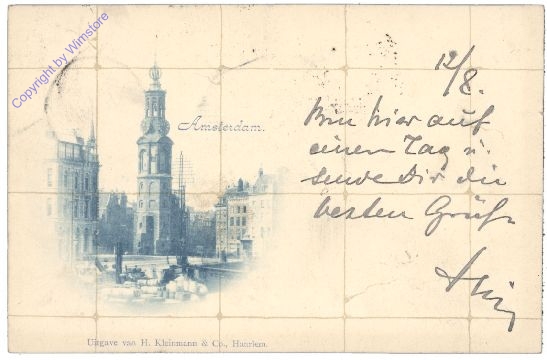 Copyright by Wimstore
Amsterdam.
12/8.
Bin hier auf
einen Tag u.
sende Dir die
besten Grüße
Uitgave van H. Kleinmann & Co., Haarlem.